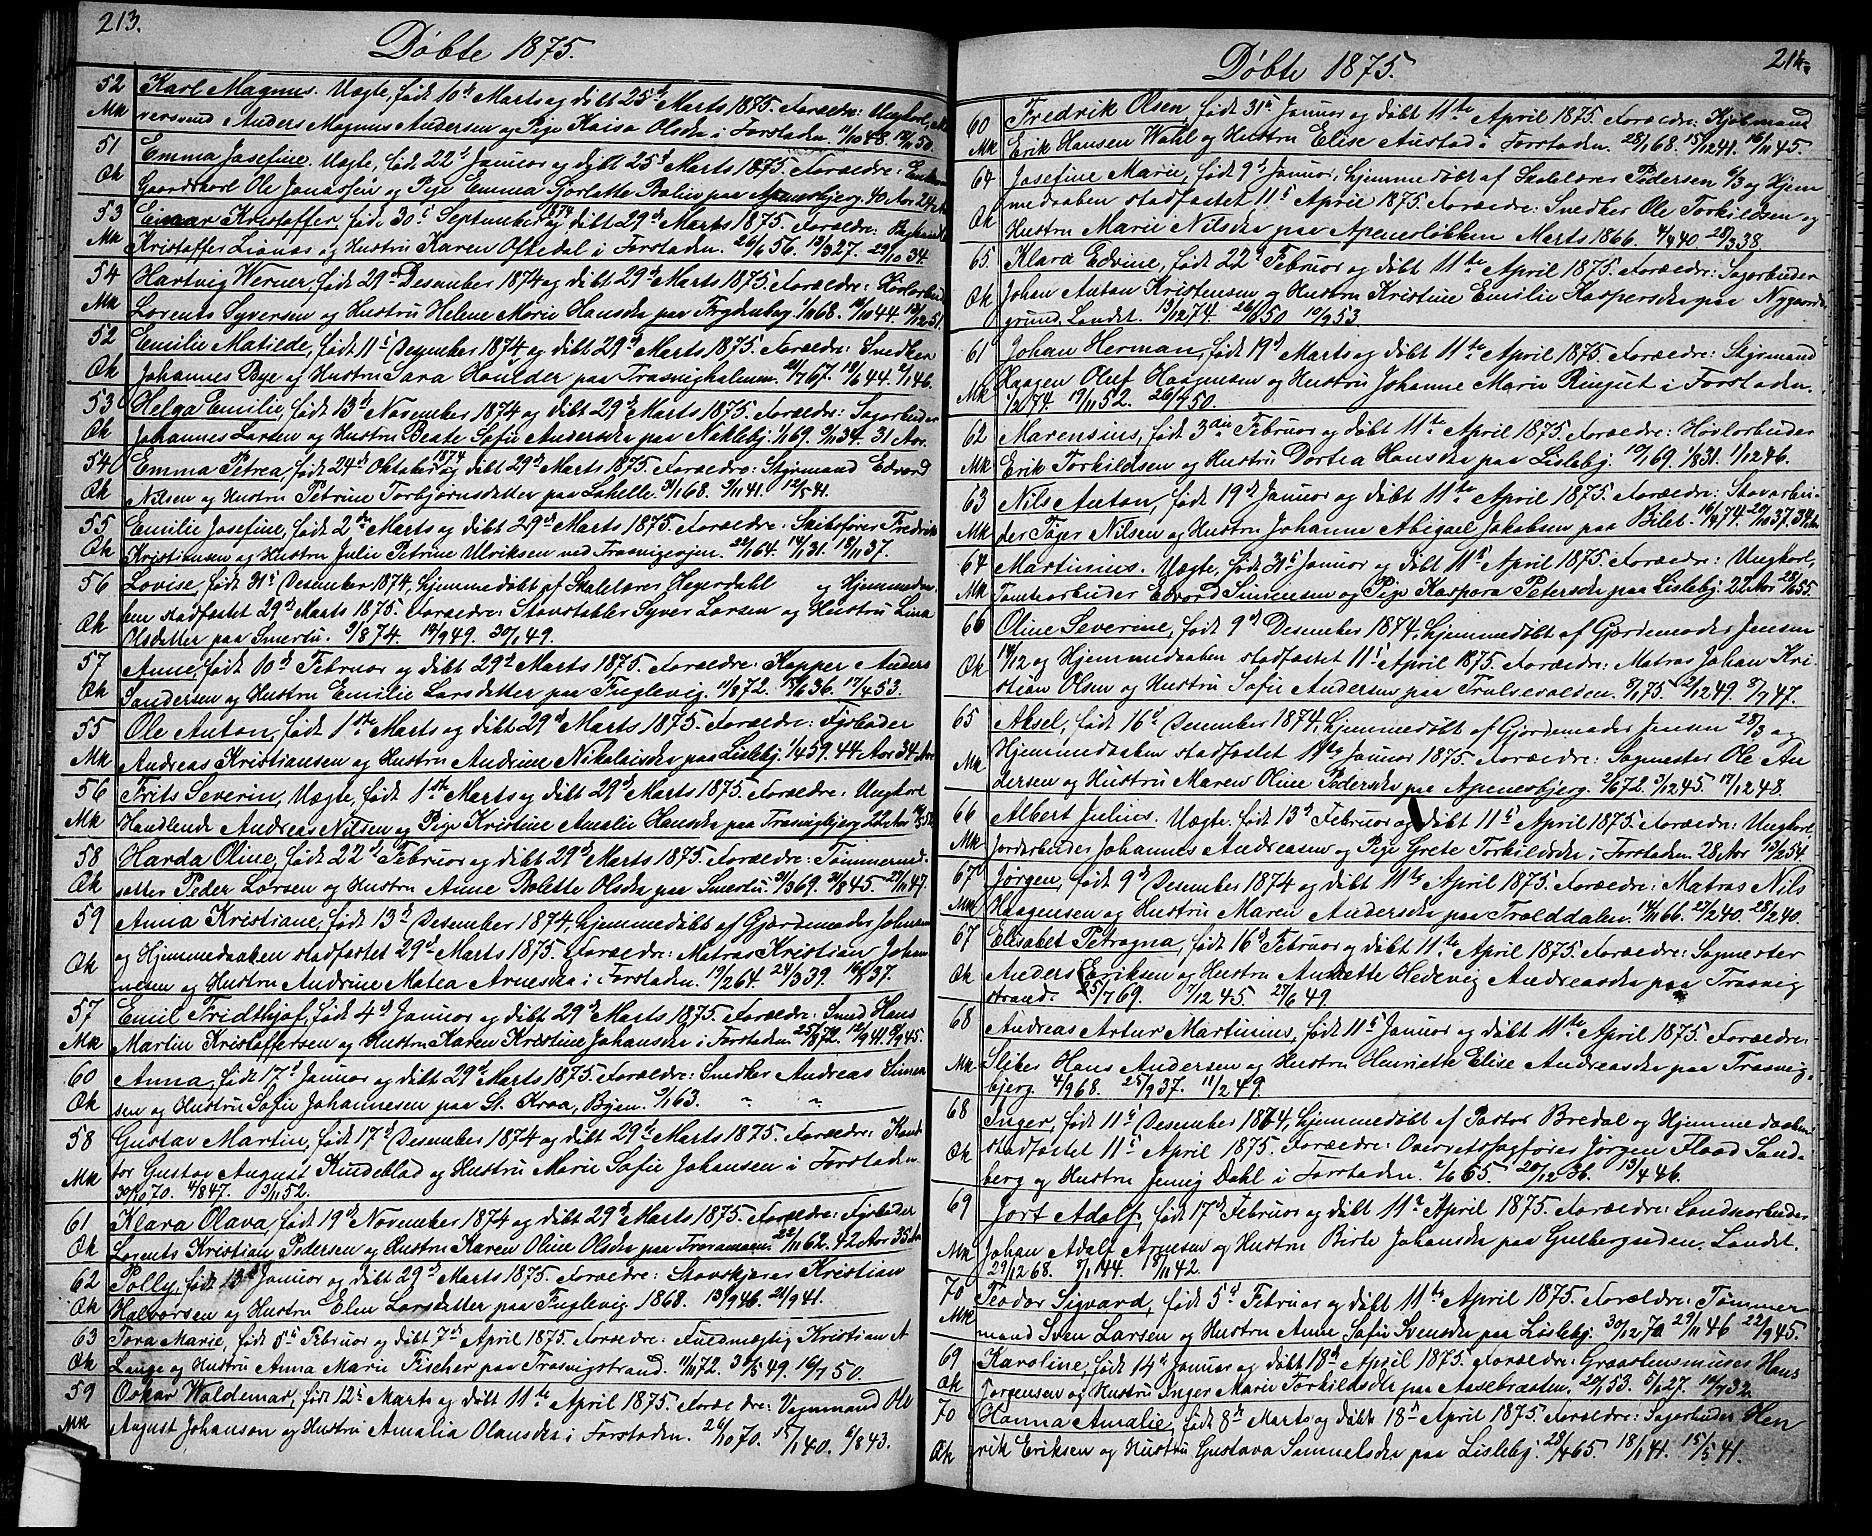 213.
Døbte 1875.
52 Karl Magnus. Uægte, født 10d Marts og døbt 25d Marts 1875. Forældre: Ungkarl,
Mk Anders Magnus Andersen og Pige Kaisa Olsdtr i Forstaden.
51 Emma Josefine. Uægte, født 22d Januar og døbt 25d Marts 1875. Forældre:
Qk Gaardskarl Ole Jonassen og Pige Emma paa Apenesbjerg. 40 Aar 24
53 Einar Kristoffer, født 30t September 1874 og døbt 29d Marts 1875. Forældre:
Mk Kristoffer Lianæs og Hustru Karen Oftedal i Forstaden. 26/6 56. 13/3 27. 29/10 34.
54 Hartvig Werner, født 29d Desember 1874 og døbt 29d Marts 1875. Forældre: Høvlarbeider
Mk Lorents Syversen og Hustru Helene Marie Hansdtr paa Frydenberg 1/11 68.
52 Emilie Matilde, født 11t Desember 1874 og døbt 29d Marts 1875. Forældre: Snedker
Qk Johannes Bye og Hustru Sara Houlder paa Trosvigholmen.
53 Helga Emilie, født 13d November 1874 og døbt 29d Marts 1875. Forældre: Sagarbeider
Qk Johannes Larsen og Hustru Beate Sofie Andersdtr paa Nøkleby 1/1 69. 9/11 34. 31 Aar.
54 Emma Petrea, født 24d Oktober 1874 og døbt 29d Marts 1875. Forældre: Styrmand Edvard
Qk Nilsen og Hustru Petrine Torbjørnsdatter paa Lahelle. 31/1 68. 9/11 41. 12/5 41.
55 Emilie Josefine, født 2d Marts og døbt 29d Marts 1875. Forældre: Skibsfører Fredrik
Qk Kristiansen og Hustru Julie Petrine Ulriksen ved Trosvigveien. 22/1 64. 14/1 31. 18/11 37.
56 Lovise, født 31t Desember 1874, hjemmedøbt af Skolelærer Heyerdahl og Hjemmedaa-
Qk ben stadfæstet 29d Marts 1875. Forældre: Stavstabler Syver Larsen og Hustru Lina
Olsdatter paa Smertu. 9/8 74. 19/9 49. 30/1 49.
57 Anne, født 10d Februar og døbt 29d Marts 1875. Forældre: Kapper Anders
Qk Sandersen og Hustru Emilie Larsdatter paa Fuglevig. 11/8 72. 15/6 36. 17/4 53.
55 Ole Anton, født 1ste Marts og døbt 29d Marts 1875. Forældre: Fyrbøder
Mk Andreas Kristiansen og Hustru Andrine Nikolaisdtr paa Lisleby. 1/4 59. 44 Aar 34 Aar
56 Frits Severin, Uægte, født 1ste Marts og døbt 29d Marts 1875. Forældre: Ungkarl
Mk Handlende Andreas Nilsen og Pige Kristine Amalie Hansdtr paa Trosvigbjerg 22 Aar
58 Harda Oline, født 22d Februar og døbt 29d Marts 1875. Forældre: Tømmermed-
Qk sætter Peder Larsen og Hustru Anne Bolette Olsdtr paa Smertu. 31/3 69. 31/8 45. 27/11 47.
59 Anna Kristiane, født 13d Desember 1874, hjemmedøbt af Gjordemoder Johansen
Qk og Hjemmedaaben stadfæstet 29d Marts 1875. Forældre: Matros Kristian Johan
nesen og Hustru Andrine Matea Arnesdtr i Forstaden. 19/2 64. 24/3 39. 16/1 37.
57 Emil Fridthjof, født 4d Januar og døbt 29d Marts 1875. Forældre: Smed Hans
Mk Martin Kristoffersen og Hustru Karen Kristine Johansdtr i Forstaden. 25/8 72. 12/9 41. 8/9 45.
60 Anna, født 17d Januar og døbt 29d Marts 1875. Forældre: Snedker Andreas Simen
Qk sen og Hustru Sofie Johannesen paa St. Kraa, Byen. 9/1 63. " "
58 Gustav Martin, født 17d Desember 1874 og døbt 29d Marts 1875. Forældre: Kan-
Mk tor Gustav August Kindeblad og Hustru Marie Sofie Johansen i Forstaden.
30/10 70. 4/8 47. 3/11 52.
61 Klara Olava, født 19d November 1874 og døbt 29d Marts 1875. Forældre: Fyrbøder
Qk Lorents Kristian Pedersen og Hustru Karen Oline Olsdtr paa 22/11 62. 42 Aar 35 Aar
62 Polly, født 13d Januar og døbt 29d Marts 1875. Forældre: Stavskjærer Kristian
Qk Halvorsen og Hustru Elen Larsdatter paa Fuglevig 1868. 13/9 46. 21/9 41.
63 Tora Marie, født 5t Februar og døbt 7d April 1875. Forældre: Fuldmægtig Kristian A
Qk Lange og Hustru Anna Marie Fischer paa Trosvigstrand. 11/11 72. 30/8 49. 16/7 50.
59 Oskar Waldemar, født 12t Marts og døbt 11te April 1875. Forældre: Vognmand Ole
Mk August Johanson og Hustru Amalia Olausdtr i Forstaden. 26/10 70. 15/1 40. 6/8 43.
214.
Døbte 1875.
60 Fredrik Olsen, født 31t Januar og døbt 11te April 1875. Forældre: Kjøbmand
Mk Erik Hansen Wahl og Hustru Elise Austad i Forstaden. 28/1 68. 15/12 41. 16/11 45.
64 Josefine Marie, født 9d Januar, hjemmedøbt af Skolelærer Pedersen 6/3 og Hjem
Qk medaaben stadfæstet 11t April 1875. Forældre: Snedker Ole Torkildsen og
Hustru Marie Nilsdtr paa Apenesløkken Marts 1866. 4/4 40. 28/3 38.
65. Klara Edvine, født 22d Februar og døbt 11te April 1875. Forældre: Sagarbeider
Qk Johan Anton Kristensen og Hustru Kristine Emilie Kaspersdtr paa Nygaards
grund, Landet. 13/12 74. 26/6 50. 10/9 53.
61 Johan Herman, født 19d Marts og døbt 11te April 1875. Forældre: Styrmand
Mk Haagen Oluf Haagensen og Hustru Johanne Marie Ringut i Forstaden.
1/2 74. 19/11 52. 26/4 50.
62 Marensius, født 3die Februar og døbt 11te April 1875. Forældre: Høvlarbeider
Mk Erik Torkildsen og Hustru Dortea Hansdtr paa Lisleby. 10/1 69. 1/8 31. 1/12 46.
63 Nils Anton, født 19d Januar og døbt 11te April 1875. Forældre: Stavarbei-
Mk der Tøger Nilsen og Hustru Johanne Abigael Jakobsen paa Bilet.
64 Martinius. Uægte, født 31t Januar og døbt 11t April 1875. Forældre: Ungkarl,
Mk Tomtearbeider Edvard Simensen og Pige Kaspara Petersdtr paa Lisleby. 22 Aar
66 Oline Severine, født 9d Desember 1874, hjemmedøbt af Gjordemoder Jensen
Qk 14/12 og Hjemmedaaben stadfæstet 11t April 1875. Forældre: Matros Johan Kri
stian Olsen og Hustru Sofie Andersen paa Trulsevolden. 8/1 75. 21/12 49. 8/9 47.
65 Aksel, født 16d Desember 1874, hjemmedøbt af Gjordemoder Jensen 28/3 og
Mk Hjemmedaaben stadfæstet 11te Januar 1875. Forældre: Sagmester Ole An
dersen og Hustru Maren Oline Pedersdtr paa Apenesbjerg. 2/6 72. 3/12 45. 17/12 48.
66 Albert Julius. Uægte, født 13d Februar og døbt 11t April 1875. Forældre: Ungkarl,
Mk Jordarbeider Johannes Andreasen og Pige Grete Torkildsdtr i Forstaden. 28 Aar 13/2 54.
67 Jørgen, født 9d Desember 1874 og døbt 11te April 1875. Forældre: Matros Nils
Mk Haagensen og Hustru Maren Andersdtr paa Trælddalen. 14/11 66. 27/2 40. 28/2 40.
67 Elisabet Petragna, født 16d Februar og døbt 11te April 1875. Forældre: Sagmester
Qk Anders Eriksen og Hustru Annette Hedevig Andreasdtr paa Trosvig
strand. 25/7 69. 7/12 45. 27/6 49.
68 Andreas Artur Martinius, født 11t Januar og døbt 11te April 1875. Forældre:
Mk Sliber Hans Andersen og Hustru Henriette Elise Andreasdtr paa Trosvig-
bjerg. 4/9 68. 25/9 37. 11/2 49.
68 Inger, født 11t Desember 1874, hjemmedøbt af Pastor Bredal og Hjemmedaaben
Qk stadfæstet 11t April 1875. Forældre: Overretssagfører Jørgen Flood Sand-
berg og Hustru Jenny Dahl i Forstaden. 2/6 65. 20/12 36. 13/4 46.
69 Jort Adolf, født 17d Februar og døbt 11te April 1875. Forældre: Landsarbeider
Mk Johan Adolf Arnesen og Hustru Birte Johansdtr paa Gulbergsiden. Landet.
29/12 68. 8/1 44. 18/11 42.
70 Teodor Sigvard, født 5d Februar og døbt 11te April 1875. Forældre: Tømmer
Mk mand Sven Larsen og Hustru Anne Sofie Svensdtr paa Lisleby. 30/12 70. 29/11 46. 22/9 45.
69 Karoline, født 14d Januar og døbt 18d April 1875. Forældre: Graastensmurer Hans
Qk Jørgensen og Hustru Inger Marie Torkildsdtr paa Aasebraaten. 29/1 53. 5/1 27. 10/7 32.
70 Hanna Amalie, født 8d Marts og døbt 18d April 1875. Forældre: Sagarbeider Hen
Qk rik Eriksen og Hustru Gustava Samuelsdtr paa Lisleby. 28/4 65. 18/1 41. 15/5 41.